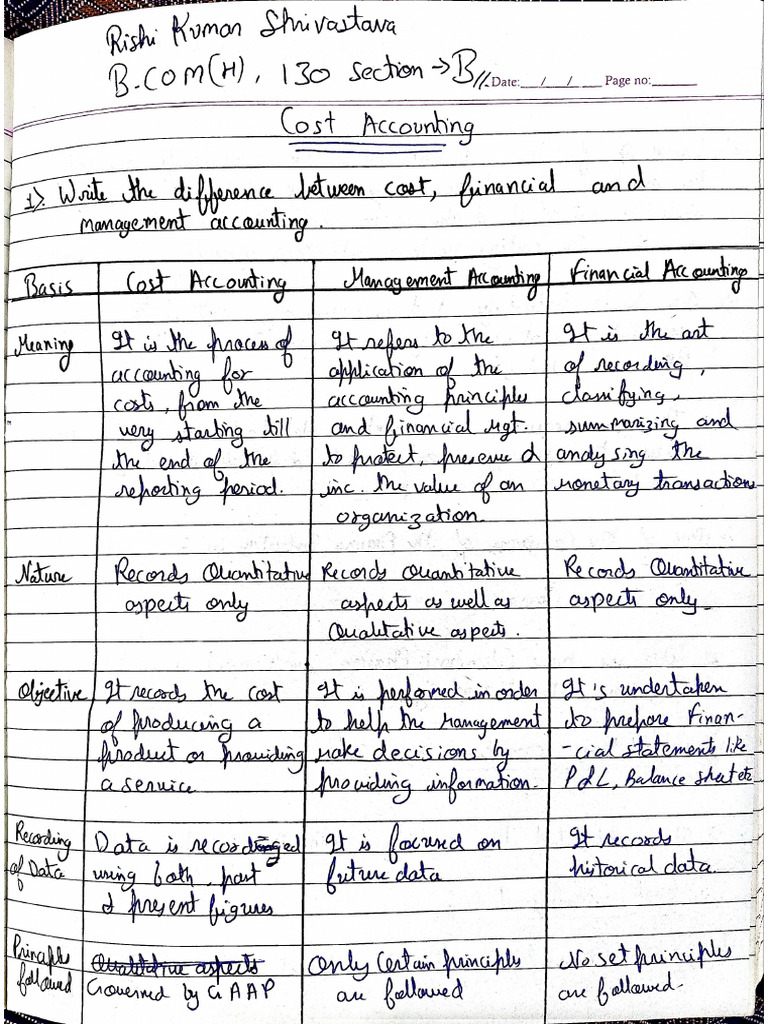 Rishi Kumar Shrivastava
B.COM(H), 130 section → B//.
Date: __/__/__ Page no: ______
Cost Accounting
1). Write the difference between cost, financial and
management accounting.
Basis | Cost Accounting | Management Accounting | Financial Accounting
Meaning | It is the process of | It refers to the | It is the art
accounting for | application of the | of recording,
costs, from the | accounting principles | classifying,
very starting till | and financial mgt. | summarizing and
the end of the | to protect, preserve & | analysing the
reporting period. | inc. the value of an | monetary transactions
organization.
Nature | Records Quantitative | Records Quantitative | Records Quantitative
aspects only | aspects as well as | aspects only.
Qualitative aspects.
Objective | It records the cost | It is performed in order | It's undertaken
of producing a | to help the management | to prepare Finan-
product or providing | make decisions by | -cial statements like
a service | providing information. | P&L, Balance sheet etc
Recording | Data is recorded | It is focused on | It records
of Data | using both, past | future data | historical data.
& present figures
Principles | Qualitative aspects | Only Certain principles | No set principles
followed | Governed by GAAP | are followed | are followed.